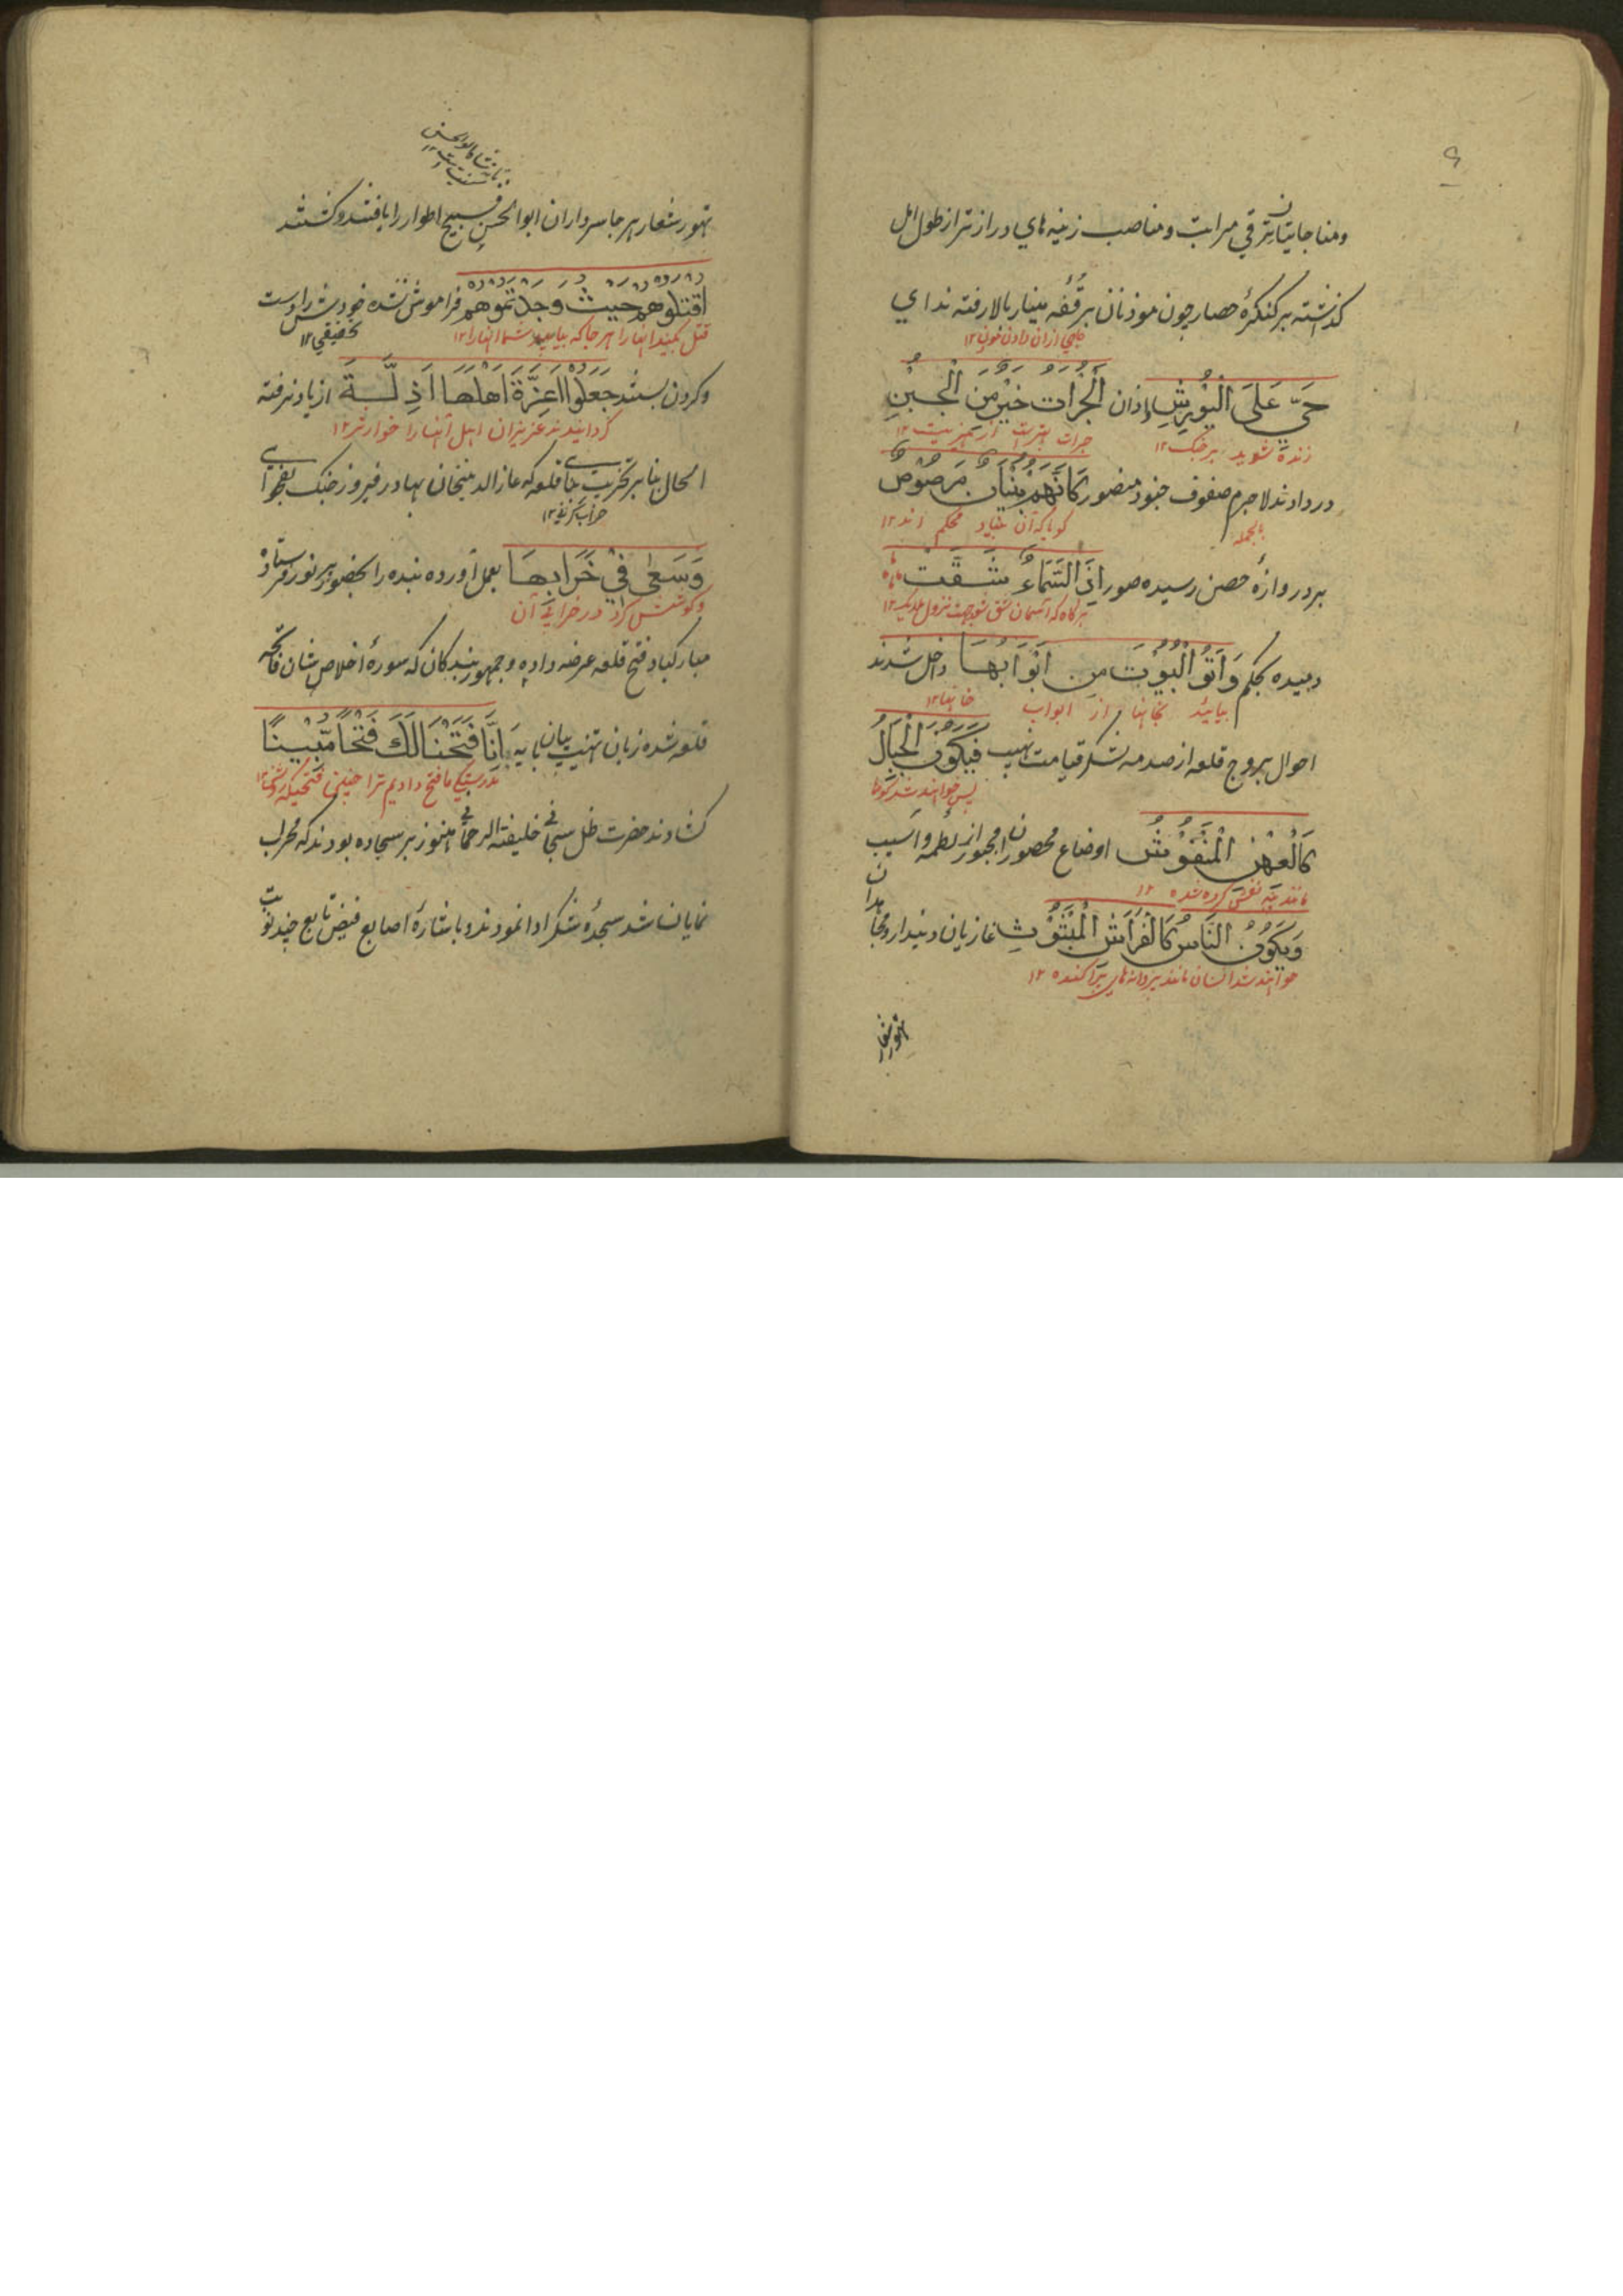 ۶
ومناجاتیان ترقی مراتب ومناصب زینه های دراز تر از طول امل
گذاشته بر کنگرهٔ حصار چون موذنان بر قُفّه مینار بالا رفته ندای
جای اذان دادن
حَیِّ عَلَی الْیُوْرِشِ واذان الْجُرْاَت خَیْرٌ مِنَ الْجُبْنِ
زنده شوید بر جنگ ۱۲
جرات بهتر است از ۱۲
در دادند لاجرم صفوف جنود منصور کَاَنَّهُمْ بُنْیَانٌ مَرْصُوْصٌ
بالجمله
گویا که آن بنیاد محکم اند ۱۲
بر دروازهٔ حصن رسیده صور اِذَ السَّمَاءُ شَقَّتْ
هرگاه که آسمان شق شود جهت نزول ملایک ۱۲
دمیده بحکم وَاَتُو الْبُیُوْتَ مِن اَبْوَابِهَا داخل شدند
بیائید بخانها از ابواب خانها ۱۲
احوال بروج قلعه از صدمه لشکر قیامت نهیب فَیَکُوْنُ الْجِبَالُ
پس خواهند شد کوهها
کَالْعِهْنِ الْمَنْفُوْشِ اوضاع محصوران مجبور از لطمه و آسیب
مانند پنبه نفش کرده شده ۱۲
وَیَکُوْنُ النَّاسُ کَالْفَرَاشِ الْمَبْثُوْثِ غازیان دیندار ومجاهدان
خواهند شد انسان مانند پروانه های پراکنده ۱۲
تهور شعار
تهور شعار هر جا سرداران ابوالحسن قبیح اطوار را یافتند و کشتند
اقتلوهم حیث وجدتموهم فراموش نشده خودش را دست
قتل بکنید آنها را هر جا که بیابید شما آنها را ۱۲
تحقیقی ۱۲
وگردن بستند جعلوا اعِزَّةَ اَهْلِهَا اَذِلَّةَ از یاد نرفته
گردانیدند عزیزان اهل آنها را خوارتر ۱۲
الحال بنا بر تخریب بنای قلعه که غازالدینخان بهادر فیروز جنگ بفحوای
خراب کردن ۱۲
وَسَعٰی فِیْ خَرَابِهَا بعمل آورده بنده را بحضور پر نور فرستاده
وکوشش کرد در خرابی آن
مبارکباد فتح قلعه عرضه داده وجمهور بندگان که سورهٔ اخلاص شان فاتحه
قلعه شده زبان تهنیت بیان بایه اِنَّا فَتَحْنَا لَکَ فَتْحًا مُّبِیْنًا
بدرستیکه ما فتح دادیم ترا چنین فتحیکه
گشادند حضرت ظل سبحانی خلیفة الرحمانی هنوز بر سجاده بودند که محراب
نمایان شد سجدهٔ شکر ادا نمودند و باشارهٔ اصابع فیض تابع چند نوبت